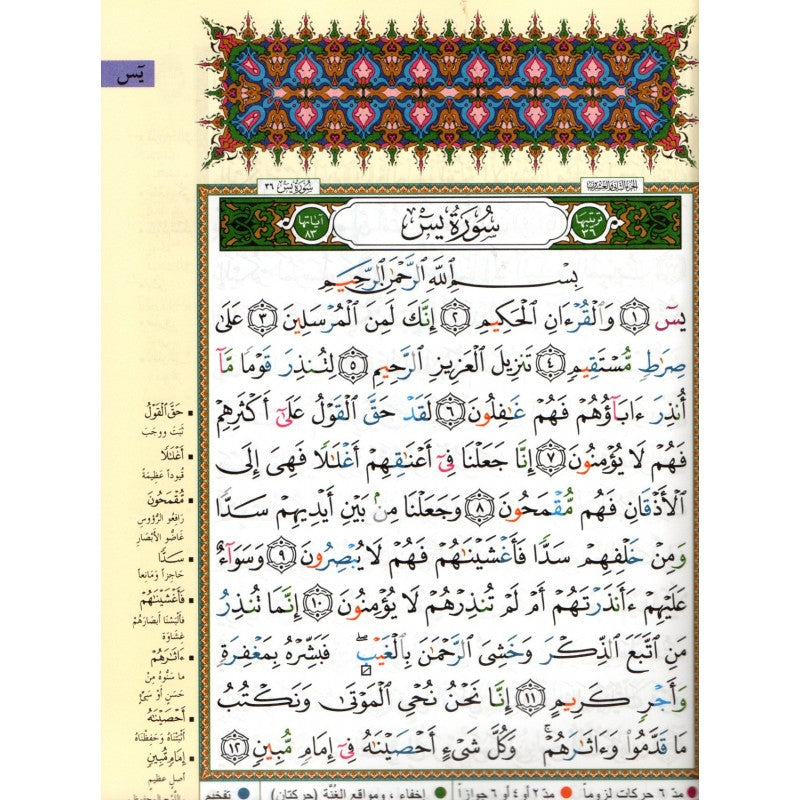 يسٓ
سُورَةُ يسٓ ٣٦
الجزء الثاني والعشرون
ترتيبها ٣٦
سُورَةُ يسٓ
آياتها ٨٣
بِسْمِ ٱللَّهِ ٱلرَّحْمَٰنِ ٱلرَّحِيمِ
يسٓ ١ وَٱلْقُرْءَانِ ٱلْحَكِيمِ ٢ إِنَّكَ لَمِنَ ٱلْمُرْسَلِينَ ٣ عَلَىٰ
صِرَٰطٍ مُّسْتَقِيمٍ ٤ تَنزِيلَ ٱلْعَزِيزِ ٱلرَّحِيمِ ٥ لِتُنذِرَ قَوْمًا مَّآ
أُنذِرَ ءَابَآؤُهُمْ فَهُمْ غَٰفِلُونَ ٦ لَقَدْ حَقَّ ٱلْقَوْلُ عَلَىٰٓ أَكْثَرِهِمْ
فَهُمْ لَا يُؤْمِنُونَ ٧ إِنَّا جَعَلْنَا فِىٓ أَعْنَٰقِهِمْ أَغْلَٰلًا فَهِىَ إِلَى
ٱلْأَذْقَانِ فَهُم مُّقْمَحُونَ ٨ وَجَعَلْنَا مِنۢ بَيْنِ أَيْدِيهِمْ سَدًّا
وَمِنْ خَلْفِهِمْ سَدًّا فَأَغْشَيْنَٰهُمْ فَهُمْ لَا يُبْصِرُونَ ٩ وَسَوَآءٌ
عَلَيْهِمْ ءَأَنذَرْتَهُمْ أَمْ لَمْ تُنذِرْهُمْ لَا يُؤْمِنُونَ ١٠ إِنَّمَا تُنذِرُ
مَنِ ٱتَّبَعَ ٱلذِّكْرَ وَخَشِىَ ٱلرَّحْمَٰنَ بِٱلْغَيْبِ ۖ فَبَشِّرْهُ بِمَغْفِرَةٍ
وَأَجْرٍ كَرِيمٍ ١١ إِنَّا نَحْنُ نُحْىِ ٱلْمَوْتَىٰ وَنَكْتُبُ
مَا قَدَّمُوا۟ وَءَاثَٰرَهُمْ ۚ وَكُلَّ شَىْءٍ أَحْصَيْنَٰهُ فِىٓ إِمَامٍ مُّبِينٍ ١٢
حَقَّ ٱلْقَوْلُ
ثَبَتَ ووجَبَ
أَغْلَٰلًا
قُيوداً عَظِيمَةً
مُّقْمَحُونَ
رَافِعُو الرُّؤُوسِ
غَاضُّو الأَبْصَارِ
سَدًّا
حَاجِزاً وَمَانِعاً
فَأَغْشَيْنَٰهُمْ
فَأَلْبَسْنَا أَبْصَارَهُمْ
غِشَاوَة
ءَاثَٰرَهُمْ
ما سَنُّوهُ مِنْ
حَسَنٍ أَوْ سَيِّئٍ
أَحْصَيْنَٰهُ
أَثْبَتْنَاهُ وَحَفِظْنَاهُ
إِمَامٍ مُّبِينٍ
أصل عظيم
مدّ ٦ حركات لزوماً
مدّ ٢ أو ٤ أو ٦ جوازاً
إخفاء، ومواقع الغُنَّة (حركتان)
تفخيم